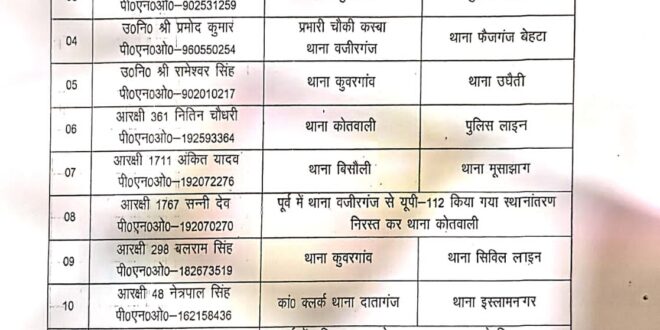 पी०एन०ओ०–902531259
04
उ०नि० श्री प्रमोद कुमार
पी०एन०ओ०–960550254
प्रभारी चौकी कस्बा
थाना वजीरगंज
थाना फैजगंज बेहटा
05
उ०नि० श्री रामेश्वर सिंह
पी०एन०ओ०–902010217
थाना कुवरगांव
थाना उघैती
06
आरक्षी 361 नितिन चौधरी
पी०एन०ओ०–192593364
थाना कोतवाली
पुलिस लाइन
07
आरक्षी 1711 अंकित यादव
पी०एन०ओ०–192072276
थाना बिसौली
थाना मूसाझाग
08
आरक्षी 1767 सन्नी देव
पी०एन०ओ०–192070270
पूर्व में थाना वजीरगंज से यूपी–112 किया गया स्थानांतरण
निरस्त कर थाना कोतवाली
09
आरक्षी 298 बलराम सिंह
पी०एन०ओ०–182673519
थाना कुवरगांव
थाना सिविल लाइन
10
आरक्षी 48 नेत्रपाल सिंह
पी०एन०ओ०–162158436
कां० क्लर्क थाना दातागंज
थाना इस्लामनगर